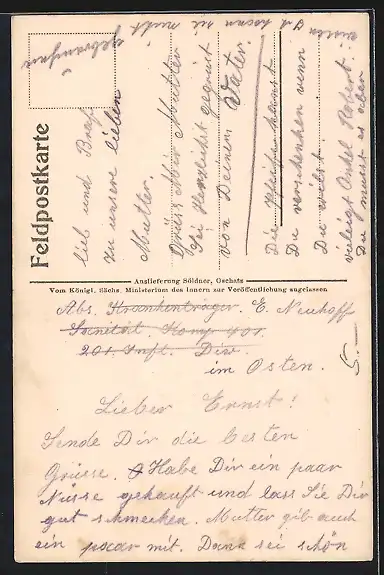 Feldpostkarte
Auslieferung Söldner, Oschatz
Vom Königl. Sächs. Ministerium des Innern zur Veröffentlichung zugelassen
Abs. Krankenträger. E. Neuhoff
Sanität. Komp
201. Inft. Div.
im Osten.
5.—
Lieber Ernst!
Sende Dir die besten
Grüsse. Habe Dir ein paar
Nüsse gekauft und lass Sie Dir
gut schmecken. Mutter gib auch
ein paar mit. Dann sei schön
lieb und Brav
zu unsere lieben
Mutter.
Grüss Mir Mutter
Sei Herzlichst gegrüsst
von Deinem Vater
Die Pfeife kannst
Du verschenken wenn
Du willst.
vieleigt Onkel Robert.
Du musst es aber
wissen Ich kann sie nicht
gebrauchen